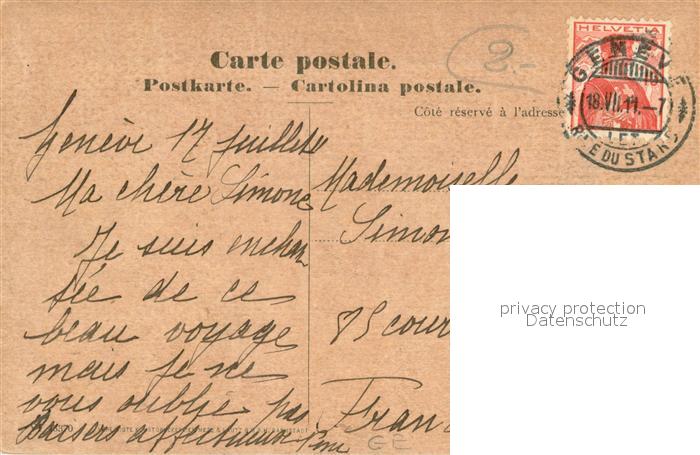 Carte postale.
Postkarte. — Cartolina postale.
Côté réservé à l'adresse
2.-
HELVETIA
GENÈV
18.VII.11.—7
RUE DU STAND
Genève 17 juillet
Ma chère Simone
Je suis enchan
tée de ce
beau voyage
mais je ne
vous oublie pas
Baisers affectueux
Mademoiselle
Simon
85 cour
Fran
GE
privacy protection
Datenschutz